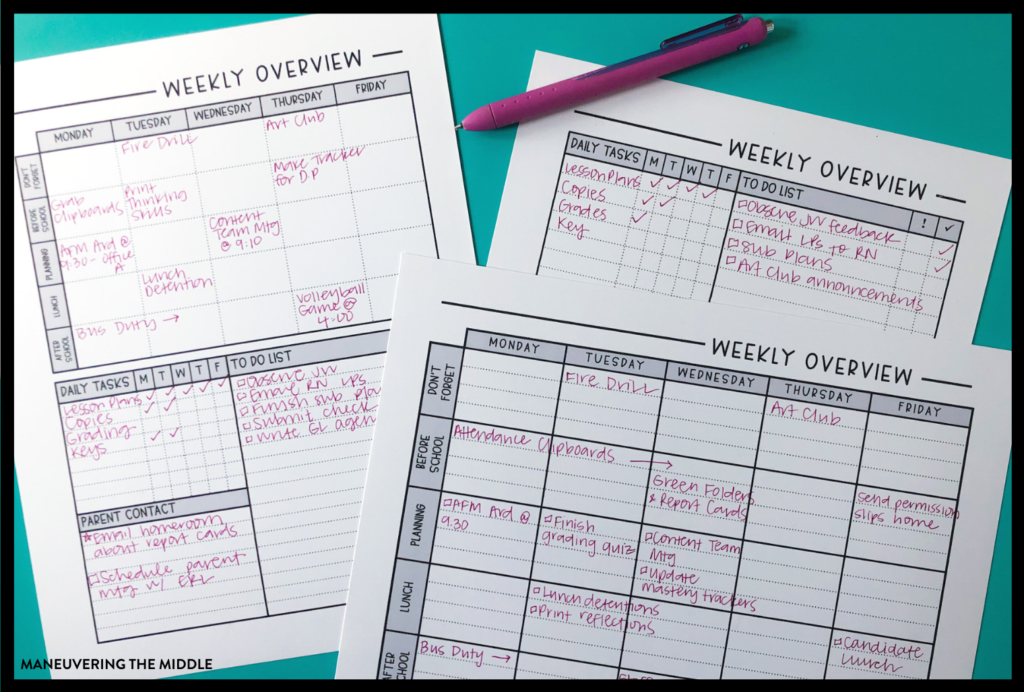 WEEKLY OVERVIEW
MONDAY TUESDAY WEDNESDAY THURSDAY FRIDAY
DON'T
FORGET
Fire Drill
Art Club
Make Tracker
for DP
BEFORE
SCHOOL
Grab
Clipboards
Print
Thinking
Skills
Content
Team Mtg
@ 9:10
PLANNING
AFM Ard @
9:30 - office
A
Lunch
Detention
LUNCH
Volleyball
Game @
4:00
AFTER
SCHOOL
Bus Duty →
DAILY TASKS M T W T F
Lesson Plans ✓ ✓ ✓ ✓ ✓
Copies ✓ ✓
Grading
Keys ✓ ✓
TO DO LIST
Obscne JW
Email RN LPs
Finish sub
Submit check
Write GL
PARENT CONTACT
*Email homeroom
about report cards
Schedule parent
mtg w/
WEEKLY OVERVIEW
DAILY TASKS M T W T F
Lesson Plans ✓ ✓ ✓ ✓
Copies ✓ ✓
Grades ✓
Key
TO DO LIST ! ✓
Obscne JW feedback ✓
Email LPs to RN ✓
Sub plans
Art Club announcements
WEEKLY OVERVIEW
MONDAY TUESDAY WEDNESDAY THURSDAY FRIDAY
DON'T
FORGET
Fire Drill
Art Club
BEFORE
SCHOOL
Attendance Clipboards →
Green Folders
& Report Cards
send permission
slips home
PLANNING
AFM Ard @
9:30
Finish
grading quiz
Content Team
Mtg
Update
mastery trackers
LUNCH
Lunch detentions
Print reflections
Candidate
Lunch
AFTER
SCHOOL
Bus Duty →
MANEUVERING THE MIDDLE